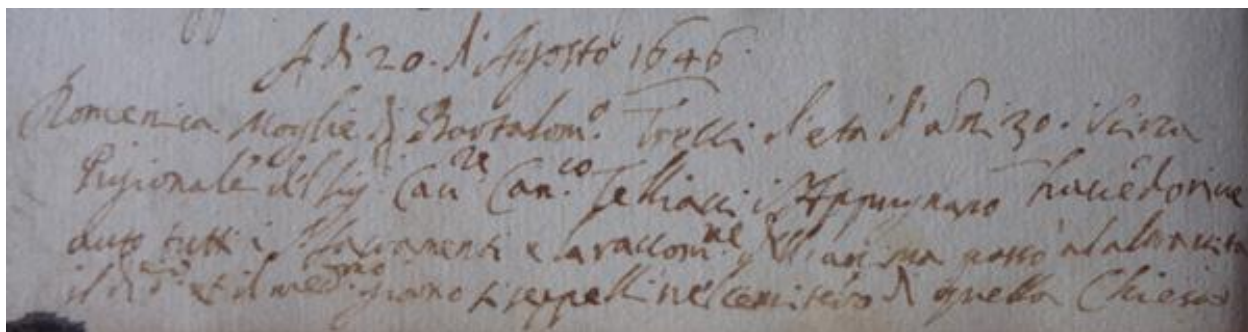 A di 20. di Agosto 1646.
Domenica Moglie di Bartolom.o Trecci d'età d'anni 30. i circa
Pigionale del Sig. Cau.re Can.co i Appugnano hauēdo riceu
auto tutti i SS. Sacramenti e la raccom.ne dell'anima passò al altra uita
il di d.o et il med.mo giorno si seppellì nel cemiterio di questa Chiesa